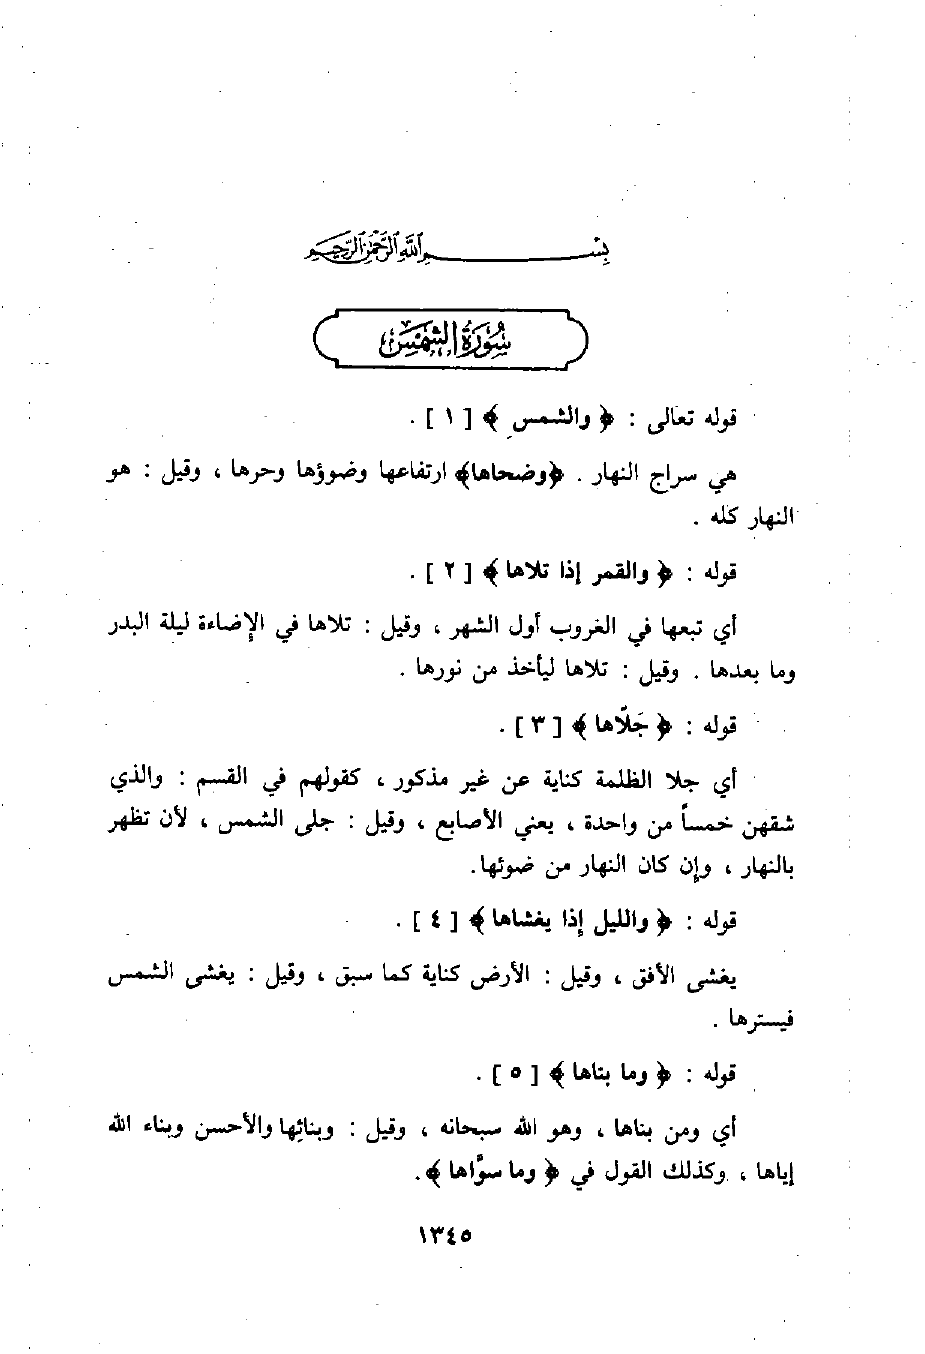 بِسْمِ اللَّهِ الرَّحْمَٰنِ الرَّحِيمِ
سُورَةُ الشَّمْسِ
قوله تعالى : ﴿ والشمس ﴾ [ ١ ] .
هي سراج النهار . ﴿وضحاها﴾ ارتفاعها وضوؤها وحرها ، وقيل : هو
النهار كله .
قوله : ﴿ والقمر إذا تلاها ﴾ [ ٢ ] .
أي تبعها في الغروب أول الشهر ، وقيل : تلاها في الإضاءة ليلة البدر
وما بعدها . وقيل : تلاها ليأخذ من نورها .
قوله : ﴿ جَلّاها ﴾ [ ٣ ] .
أي جلا الظلمة كناية عن غير مذكور ، كقولهم في القسم : والذي
شقهن خمساً من واحدة ، يعني الأصابع ، وقيل : جلى الشمس ، لأن تظهر
بالنهار ، وإن كان النهار من ضوئها.
قوله : ﴿ والليل إذا يغشاها ﴾ [ ٤ ] .
يغشى الأفق ، وقيل : الأرض كناية كما سبق ، وقيل : يغشى الشمس
فيسترها .
قوله : ﴿ وما بناها ﴾ [ ٥ ] .
أي ومن بناها ، وهو الله سبحانه ، وقيل : وبنائِها والأحسن وبناء الله
إياها ، وكذلك القول في ﴿ وما سوَّاها ﴾.
١٣٤٥